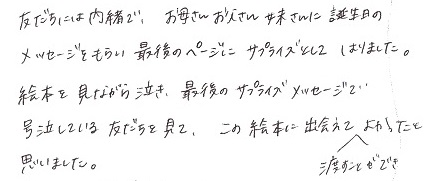 友だちには内緒で、お母さんお父さん妹さんに誕生日の
メッセージをもらい最後のページにサプライズとしてはりました。
絵本を見ながら泣き、最後のサプライズメッセージで
号泣している友だちを見て、この絵本に出会えてよかったと
思いました。
渡すことができ